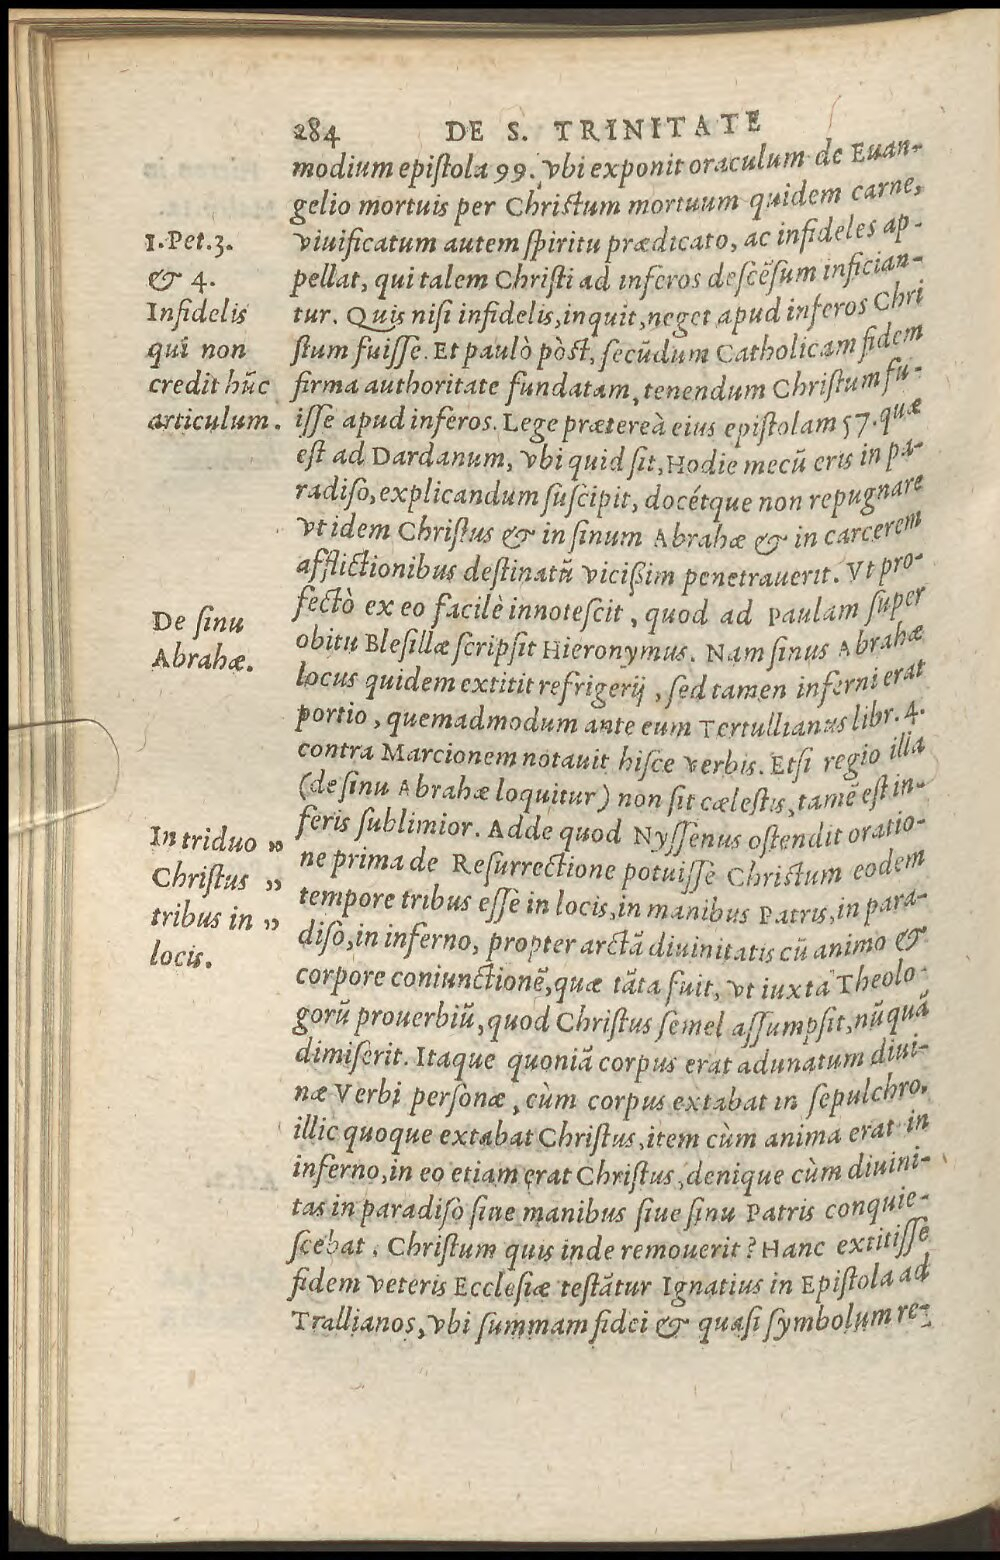 284 DE S. TRINITATE
modium epiſtola 99. vbi exponit oraculum de Euan-
gelio mortuis per Chriſtum mortuum quidem carne,
viuificatum autem ſpiritu prædicato, ac infideles ap-
pellat, qui talem Chriſti ad inferos deſcẽſum infician-
tur. Quis niſi infidelis, inquit, neget apud inferos Chri
ſtum fuiſſe. Et paulò pòſt, ſecũdum Catholicam fidem
firma authoritate fundatam, tenendum Chriſtum fu-
iſſe apud inferos. Lege prætereà eius epiſtolam 57. quæ
eſt ad Dardanum, vbi quid ſit, Hodie mecũ eris in pa-
radiſo, explicandum ſuſcipit, docétque non repugnare
vt idem Chriſtus & in ſinum Abrahæ & in carcerem
afflictionibus deſtinatũ vicißim penetrauerit. Vt pro-
fectò ex eo facilè innoteſcit, quod ad Paulam ſuper
obitu Bleſillæ ſcripſit Hieronymus. Nam ſinus Abrahæ
locus quidem extitit refrigerij, ſed tamen inferni erat
portio, quemadmodum ante eum Tertullianus libr. 4.
contra Marcionem notauit hiſce verbis. Etſi regio illa
(de ſinu Abrahæ loquitur) non ſit cæleſtis, tamẽ eſt in-
feris ſublimior. Adde quod Nyſſenus oſtendit oratio-
ne prima de Reſurrectione potuiſſe Chriſtum eodem
tempore tribus eſſe in locis, in manibus Patris, in para-
diſo, in inferno, propter arctã diuinitatis cũ animo &
corpore coniunctionẽ, quæ tãta fuit, vt iuxta Theolo-
gorũ prouerbiũ, quod Chriſtus ſemel aſſumpſit, nũquã
dimiſerit. Itaque quoniã corpus erat adunatum diui-
næ Verbi perſonæ, cùm corpus extabat in ſepulchro,
illic quoque extabat Chriſtus, item cùm anima erat in
inferno, in eo etiam erat Chriſtus, denique cùm diuini-
tas in paradiſo ſiue manibus ſiue ſinu Patris conquie-
ſcebat, Chriſtum quis inde remouerit? Hanc extitiſſe
fidem veteris Eccleſiæ teſtãtur Ignatius in Epiſtola ad
Trallianos, vbi ſummam fidei & quaſi ſymbolum re-
1.Pet.3.
& 4.
Infidelis
qui non
credit hũc
articulum.
De ſinu
Abrahæ.
In triduo ”
Chriſtus ”
tribus in ”
locis.